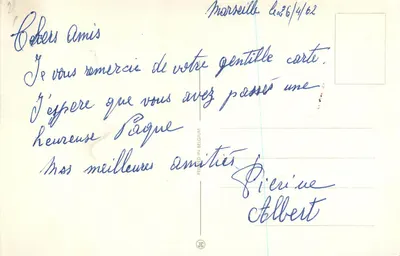 Marseille le 26/4/62
Chers Amis
Je vous remercie de votre gentille carte.
J'espere que vous avez passés une
heureuse Paque
Mes meilleures amitiés
Pierine
Albert